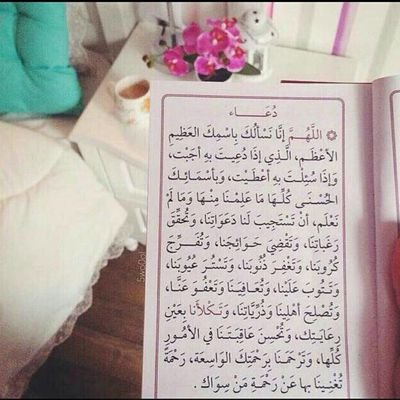 دُعَـــاء
اللَّهُمَّ إِنَّا نَسْأَلُكَ بِاسْمِكَ العَظِيمِ
الأَعْظَمِ، الَّذِي إِذَا دُعِيتَ بِهِ أَجَبْتَ،
وَإِذَا سُئِلْتَ بِهِ أَعْطَيْتَ، وَبِأَسْمَائِكَ
الحُسْنَى كُلِّهَا مَا عَلِمْنَا مِنْهَا وَمَا لَمْ
نَعْلَم، أَنْ تَسْتَجِيبَ لَنَا دَعَوَاتِنَا، وَتُحَقِّقَ
رَغَبَاتِنَا، وَتَقْضِيَ حَوَائِجَنَا، وَتُفَرِّجَ
كُرُوبَنَا، وَتَغْفِرَ ذُنُوبَنَا، وَتَسْتُرَ عُيُوبَنَا،
وَتَتُوبَ عَلَيْنَا، وَتُعَافِيَنَا وَتَعْفُوَ عَنَّا،
وَتُصْلِحَ أَهْلِينَا وَذُرِّيَّاتِنَا، وَتَكْلَأَنَا بِعَيْنِ
رِعَايَتِك، وَتُحْسِنَ عَاقِبَتَنَا فِي الأُمُورِ
كُلِّهَا، وَتَرْحَمَنَا بِرَحْمَتِكَ الوَاسِعَة، رَحْمَةً
تُغْنِينَا بِهَا عَنْ رَحْمَةِ مَنْ سِوَاك .